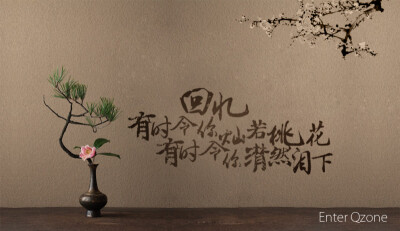 回忆
有时令你灿若桃花
有时令你潸然泪下
Enter Qzone